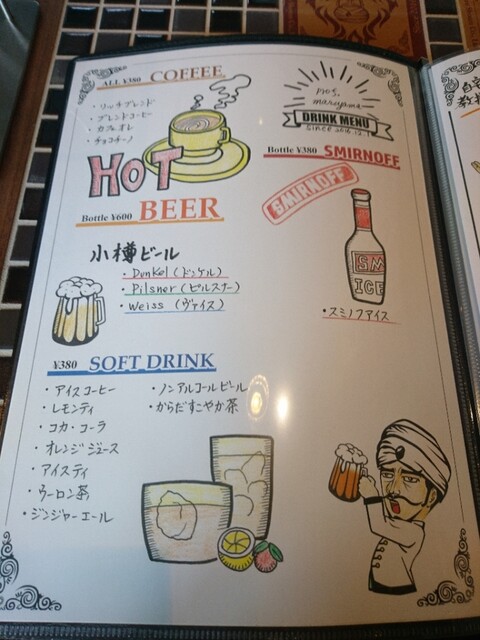 ALL ¥380 COFFEE
・リッチブレンド
・ブレンドコーヒー
・カフェオレ
・チョコチーノ
HOT
maruyama
DRINK MENU
Bottle ¥380 SMIRNOFF
SMIRNOFF
SM
ICE
・スミノフアイス
Bottle ¥600 BEER
小樽ビール
・Dunkel(ドンケル)
・Pilsner(ピルスナー)
・Weiss(ヴァイス)
¥380 SOFT DRINK
・アイスコーヒー
・レモンティ
・コカ・コーラ
・オレンジジュース
・アイスティ
・ウーロン茶
・ジンジャーエール
・ノンアルコールビール
・からだすこやか茶